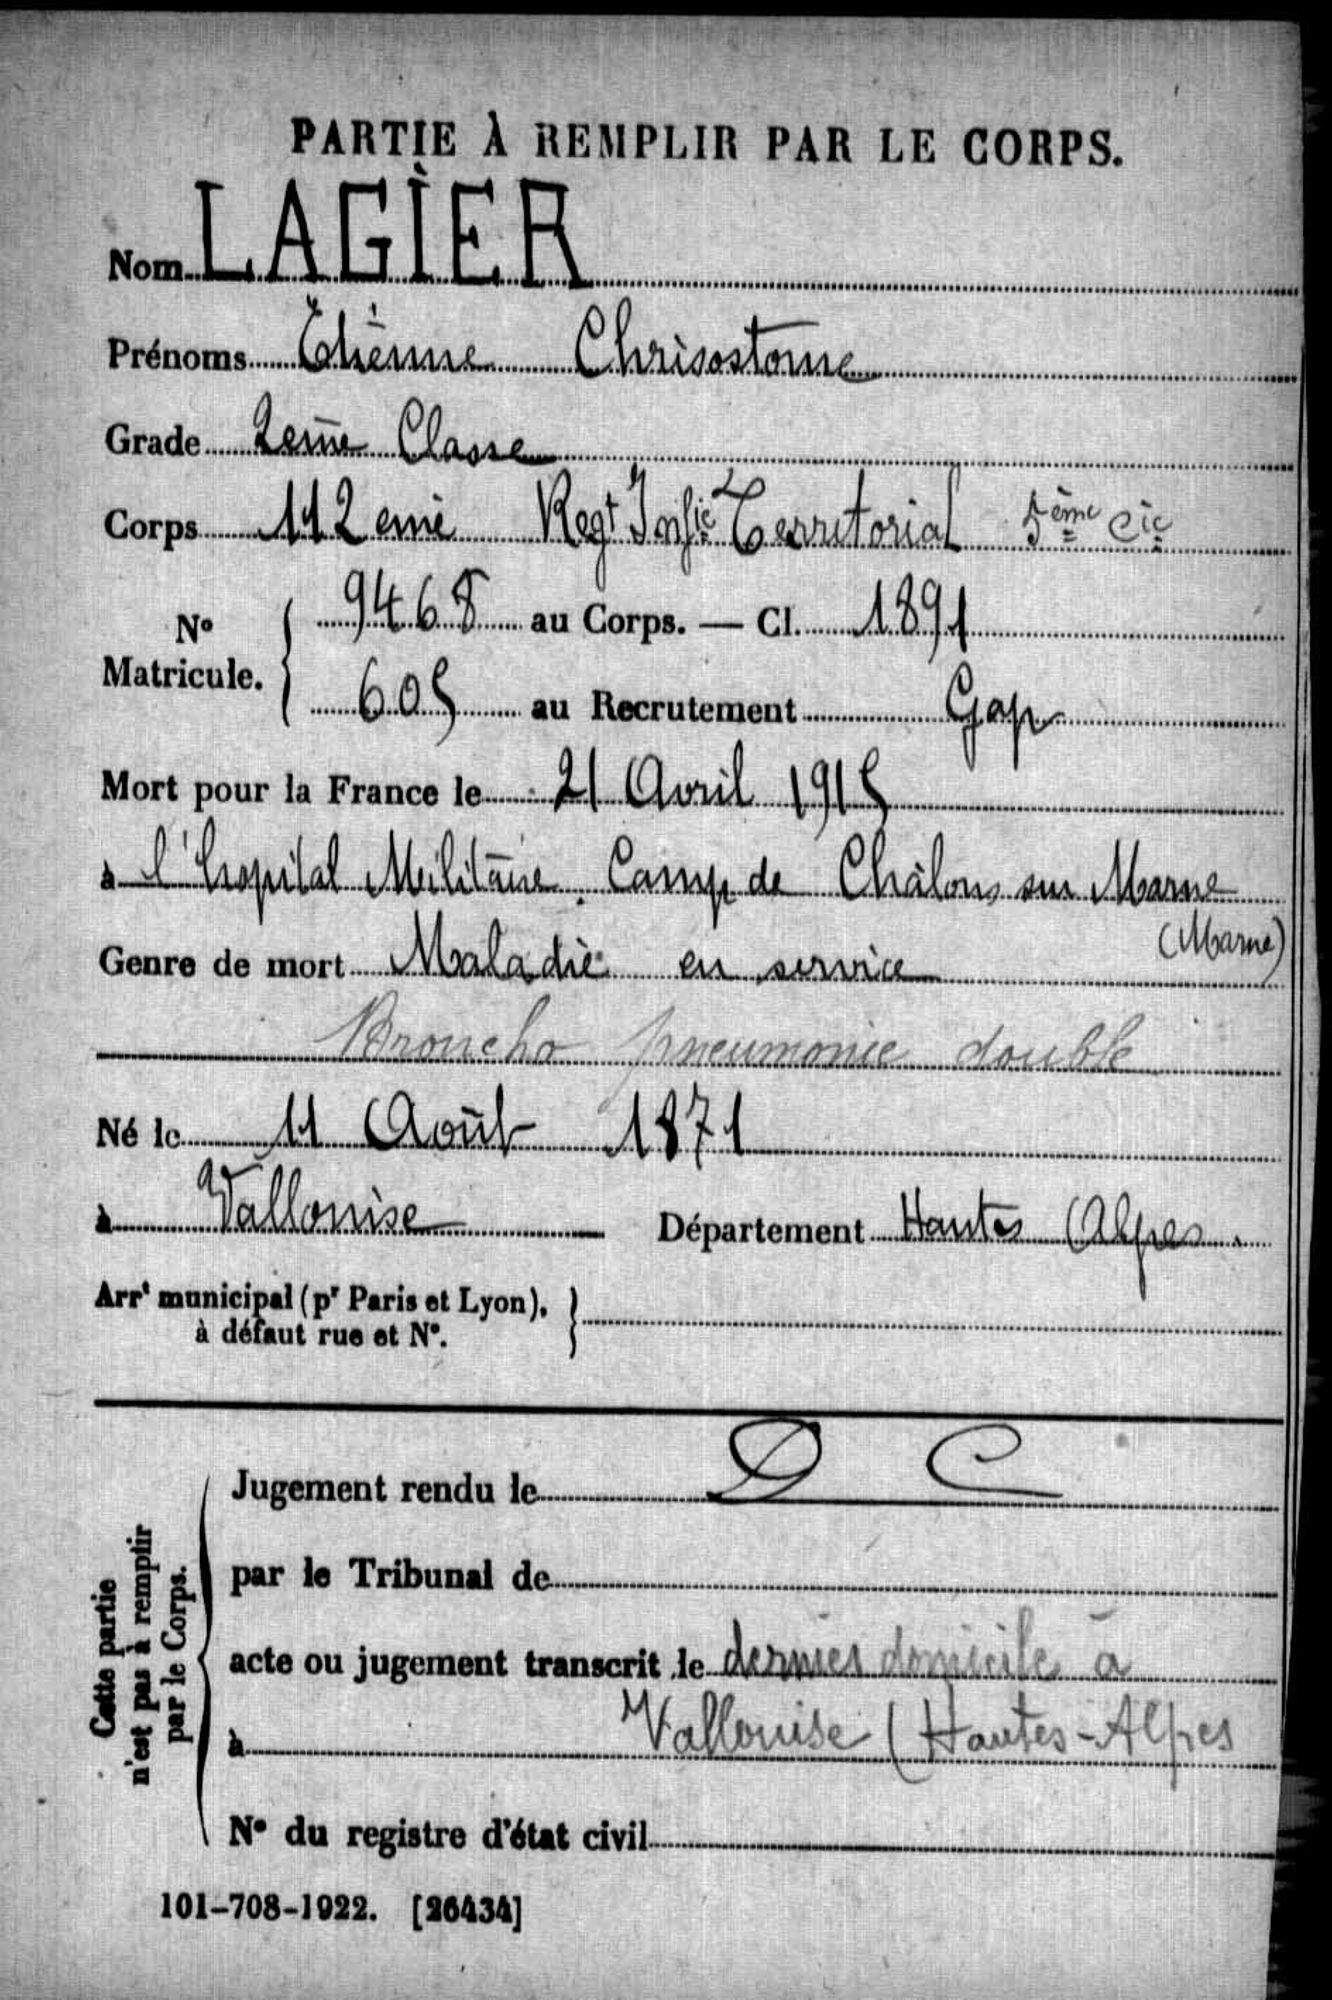 PARTIE À REMPLIR PAR LE CORPS.
Nom LAGIER
Prénoms Etiènne Chrisostome
Grade 2eme Classe
Corps 112 eme Regt Infie Territorial 5ème Cie
N° Matricule. 9468 au Corps. — Cl. 1891
605 au Recrutement Gap
Mort pour la France le 21 Avril 1915
à l'hopital Militaire. Camp de Châlons sur Marne
(Marne)
Genre de mort Maladie en service
Broncho pneumonie double
Né le 11 Août 1871
à Vallouise Département Hautes Alpes.
Arrt municipal (pr Paris et Lyon),
à défaut rue et N°.
Jugement rendu le D C
par le Tribunal de
acte ou jugement transcrit le dernier domicile à
à Vallouise (Hautes-Alpes
N° du registre d'état civil
Cette partie
n'est pas à remplir
par le Corps.
101-708-1922. [26434]